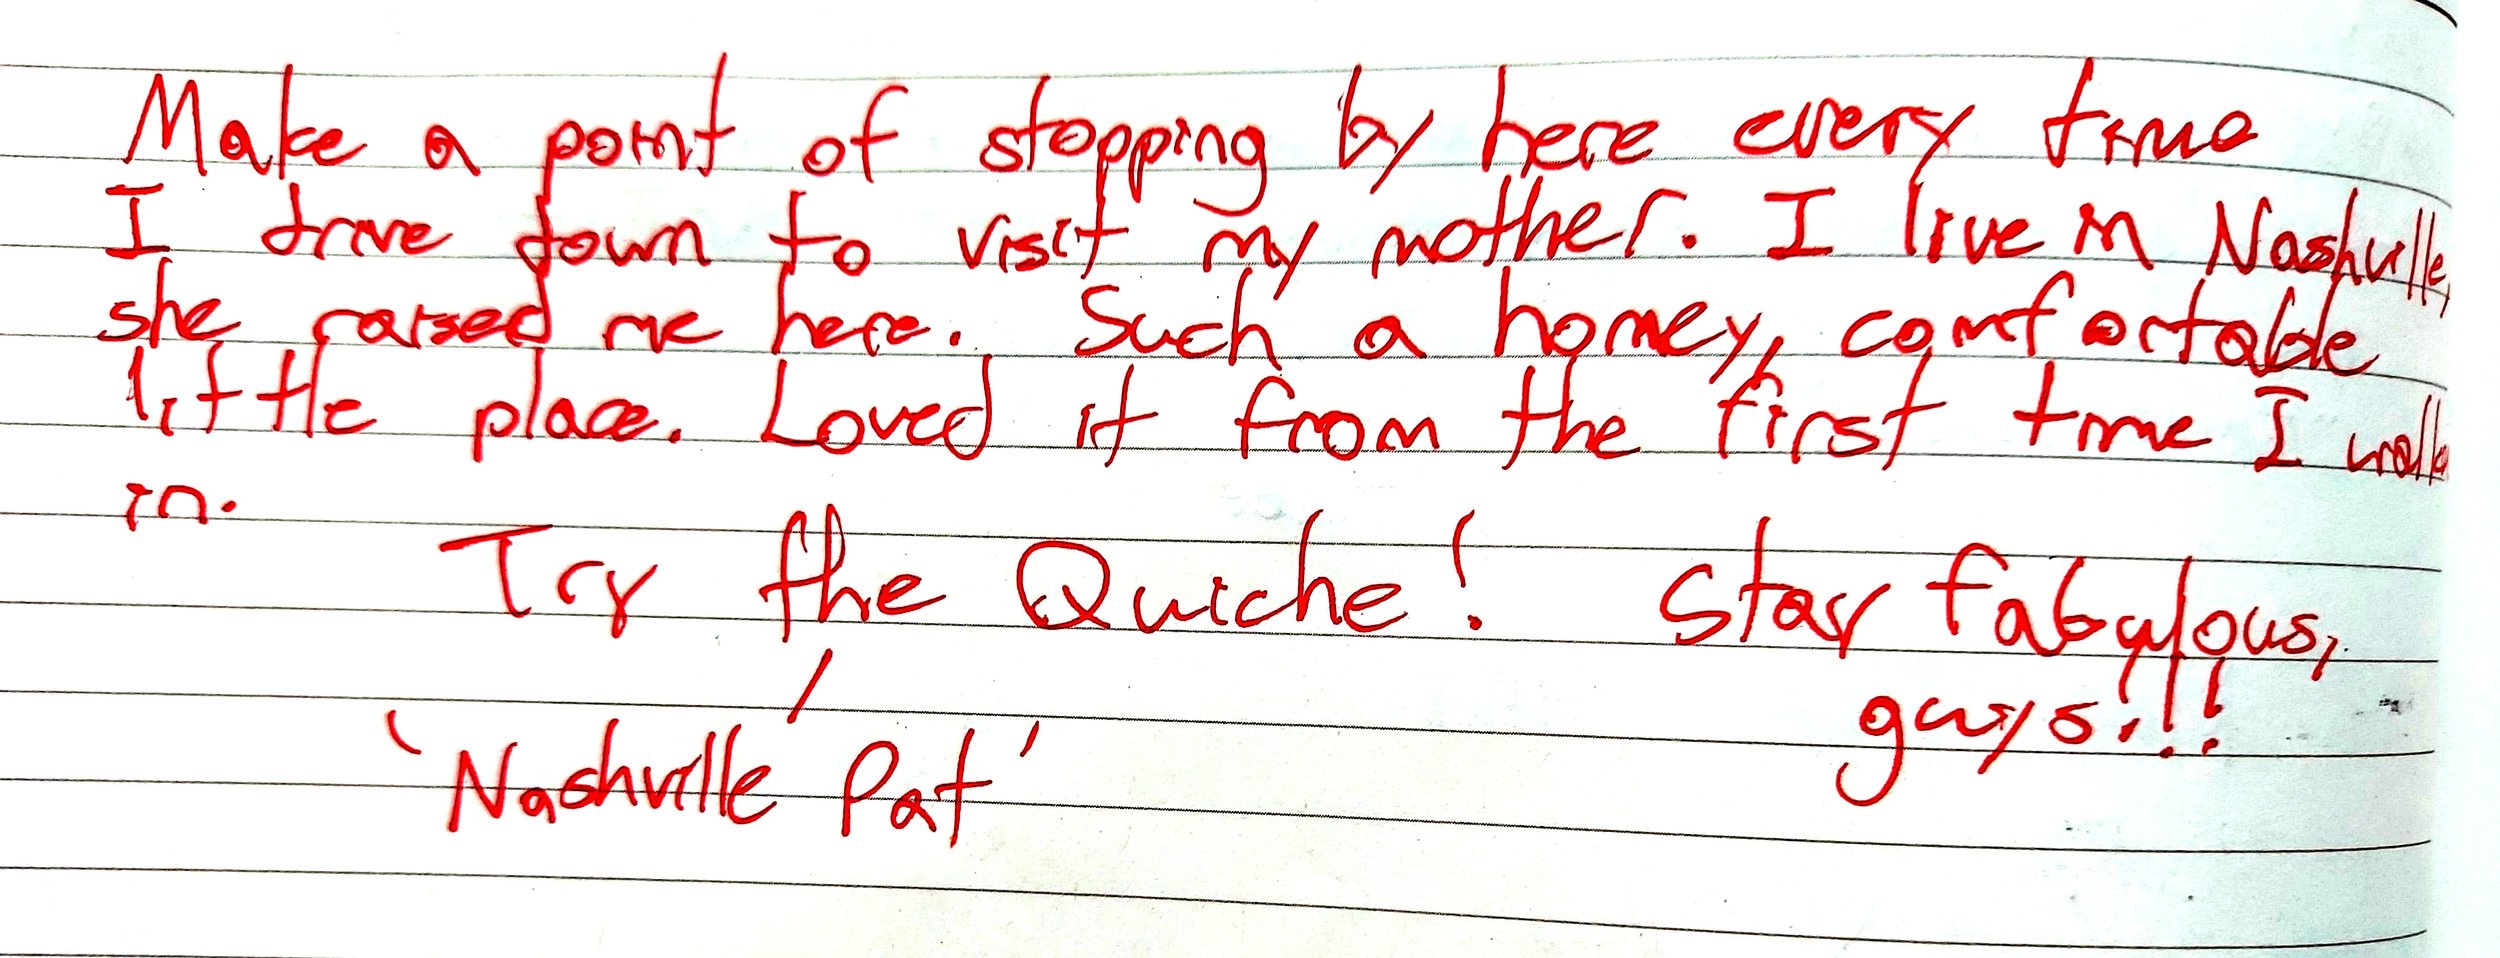 Make a point of stopping by here every time
I drive down to visit my mother. I live in Nashville,
she raised me here. Such a homey, comfortable
little place. Loved it from the first time I
in.
Try the Quiche! Stay fabulous,
guys!!!
'Nashville Pat'